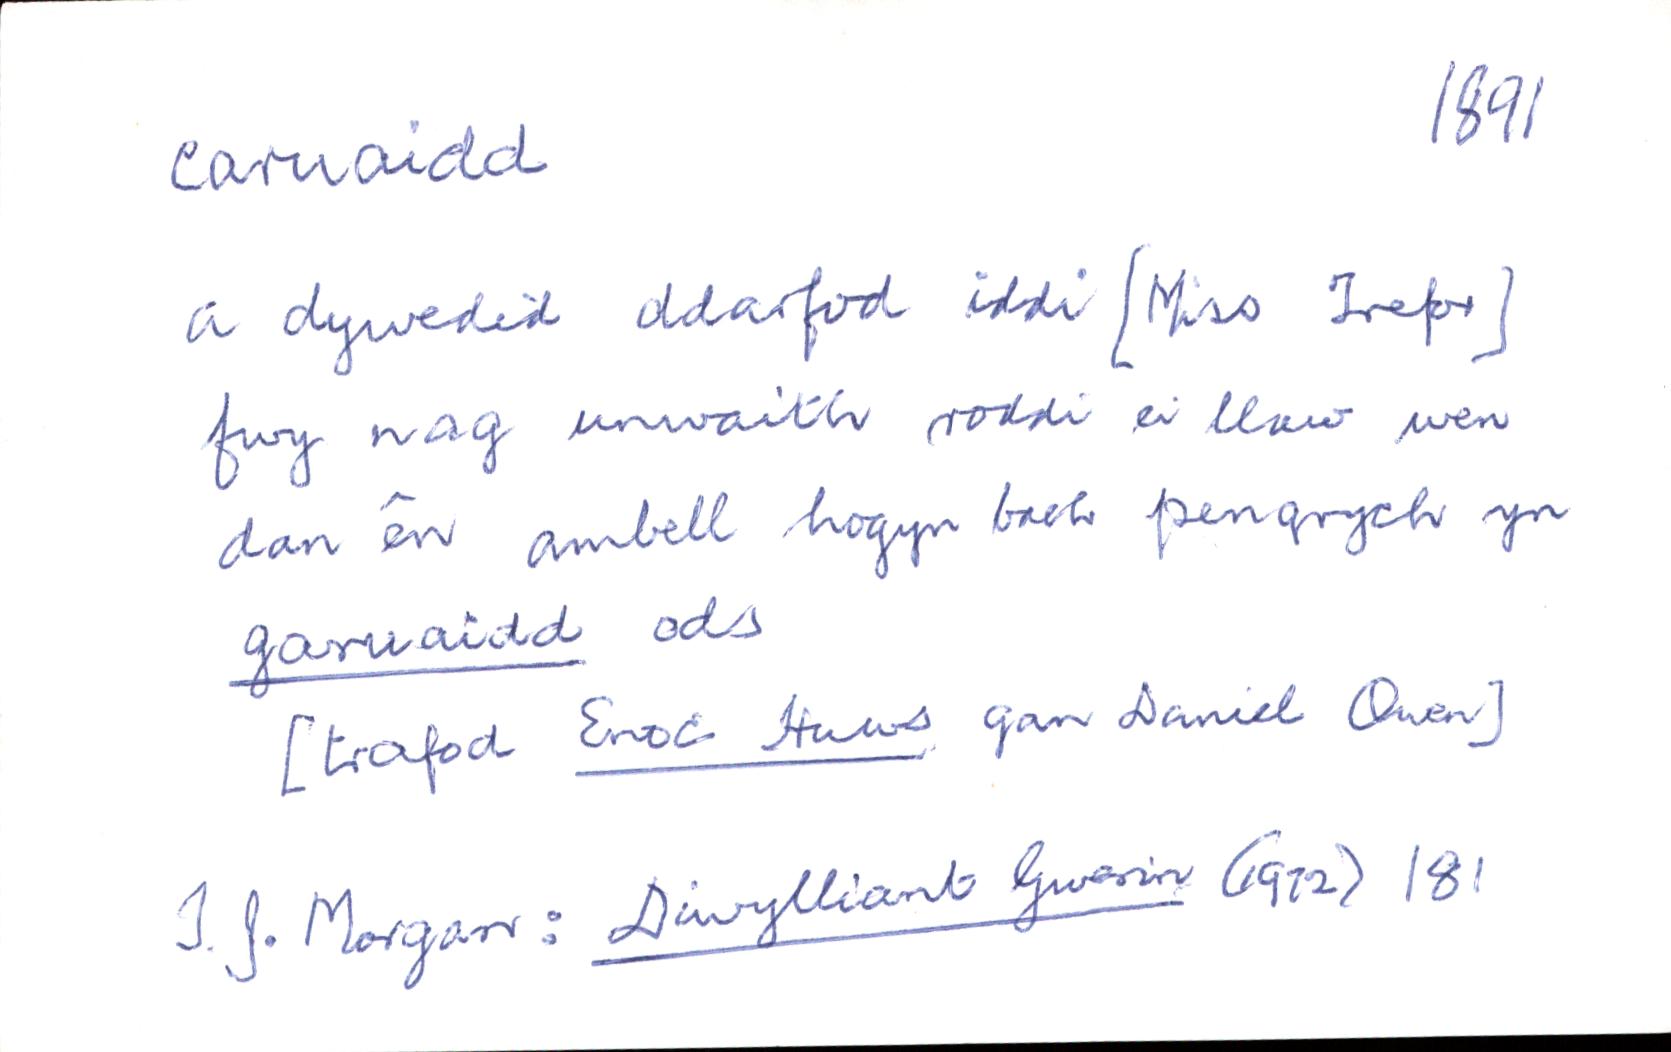 1891
caruaidd
a dywedid ddarfod iddi [Miss Trefor]
fwy nag unwaith roddi ei llaw wen
dan ên ambell hogyn bach pengrych yn
garuaidd ods
[trafod Enoc Huws gan Daniel Owen]
T. J. Morgan: Diwylliant Gwerin (1972) 181